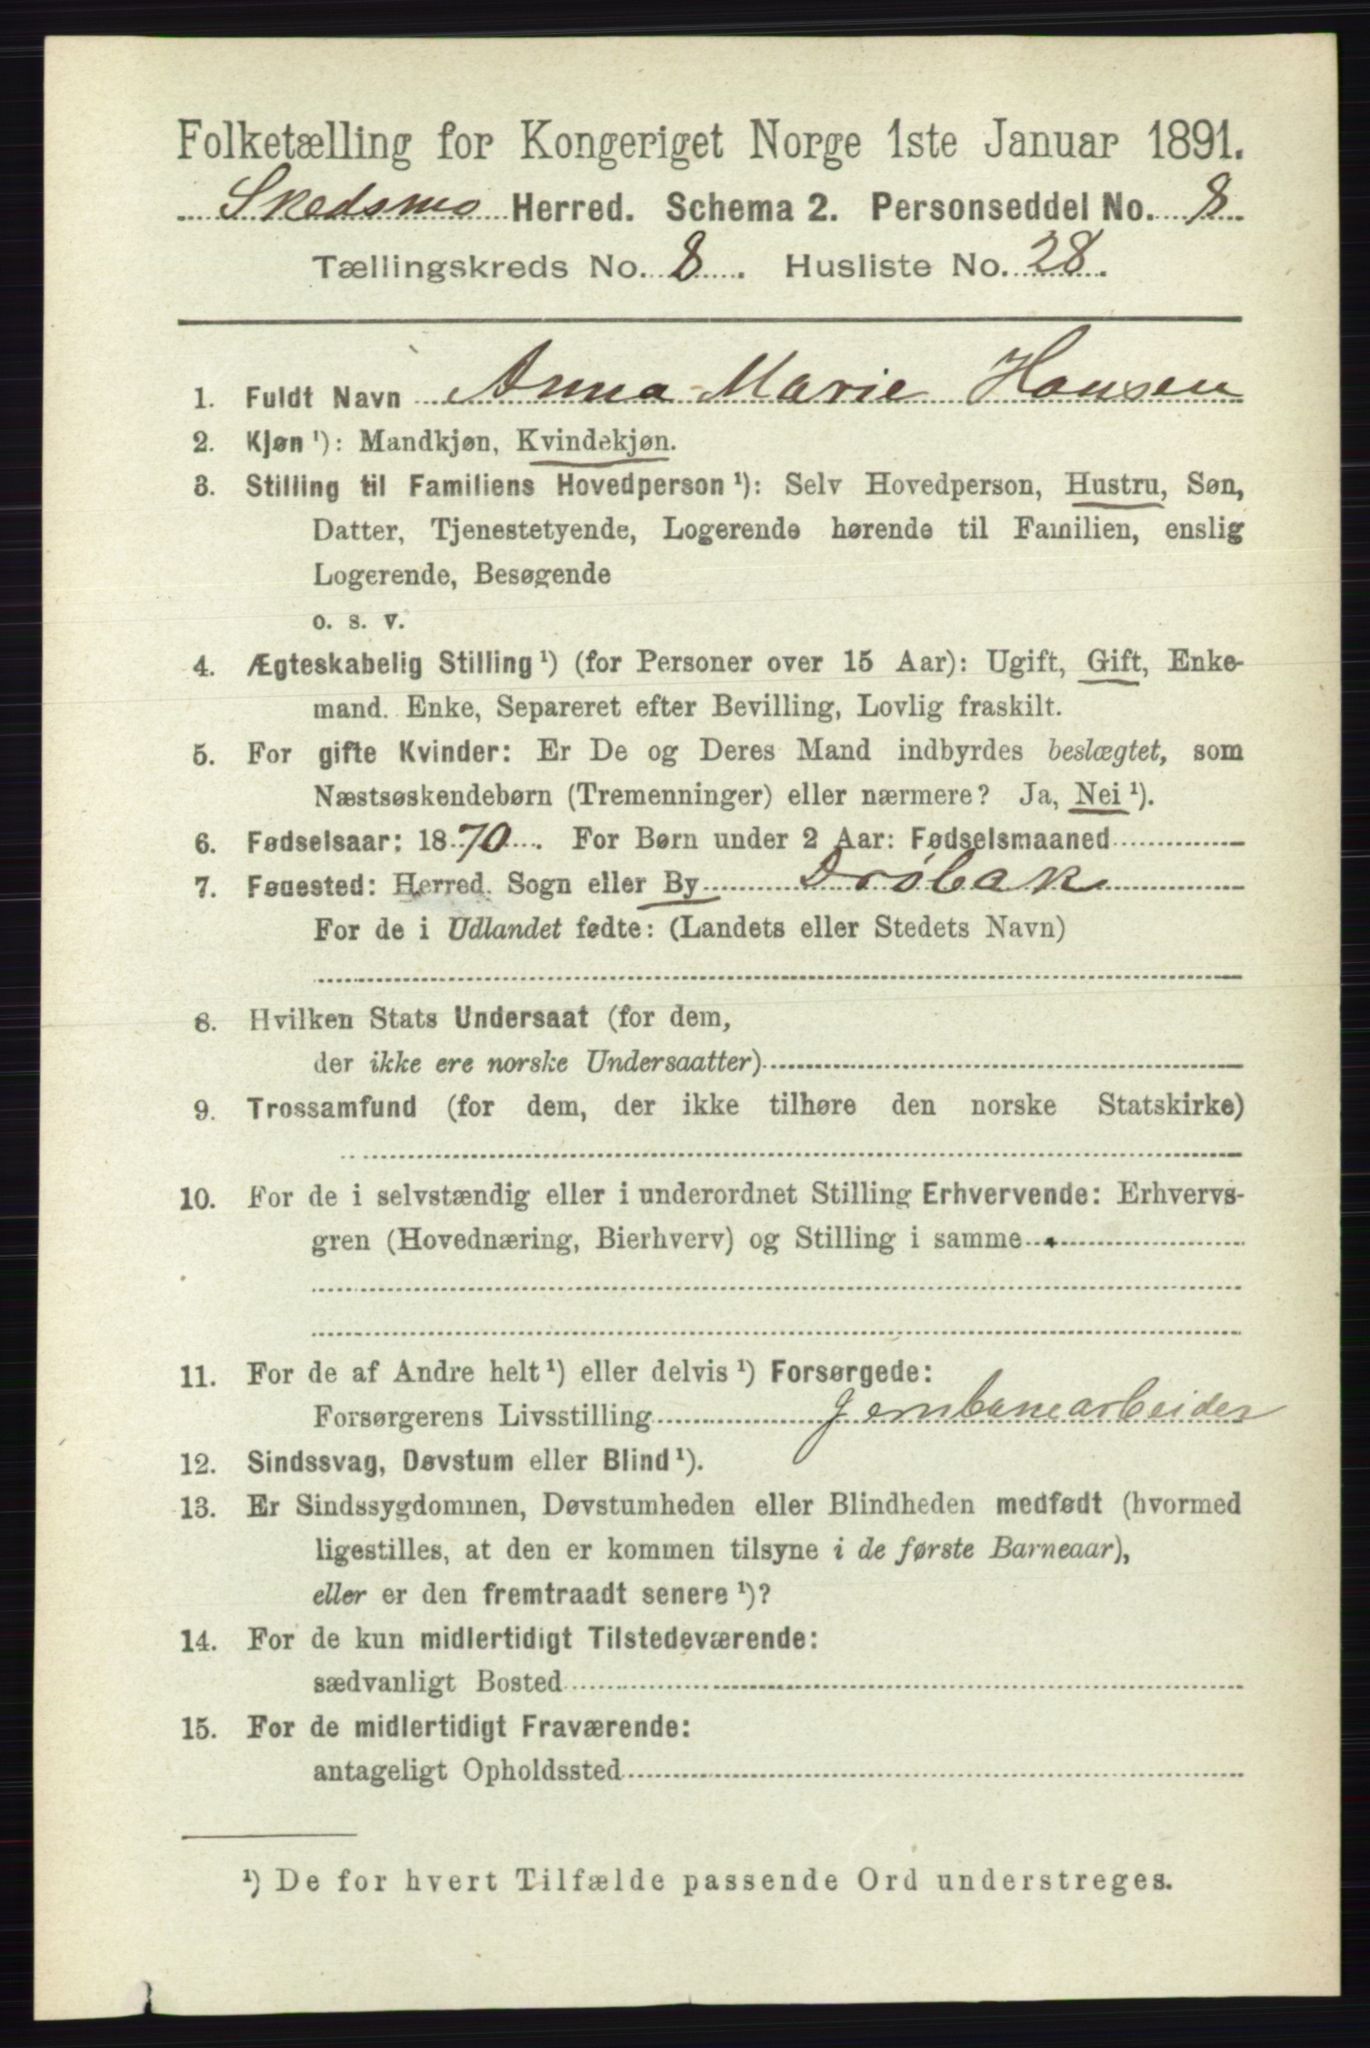 Folketælling for Kongeriget Norge 1ste Januar 1891.
Skedsmo Herred. Schema 2. Personseddel No. 8
Tællingskreds No. 8. Husliste No. 28.
1. Fuldt Navn Anna Marie Hansen
2. Kjøn ¹): Mandkjøn, Kvindekjøn.
3. Stilling til Familiens Hovedperson ¹): Selv Hovedperson, Hustru, Søn,
Datter, Tjenestetyende, Logerende hørende til Familien, enslig
Logerende, Besøgende
o. s. v.
4. Ægteskabelig Stilling ¹) (for Personer over 15 Aar): Ugift, Gift, Enke-
mand. Enke, Separeret efter Bevilling, Lovlig fraskilt.
5. For gifte Kvinder: Er De og Deres Mand indbyrdes beslægtet, som
Næstsøskendebørn (Tremenninger) eller nærmere? Ja, Nei ¹).
6. Fødselsaar: 1870. For Børn under 2 Aar: Fødselsmaaned
7. Føuested: Herred. Sogn eller By Drøbak
For de i Udlandet fødte: (Landets eller Stedets Navn)
8. Hvilken Stats Undersaat (for dem,
der ikke ere norske Undersaatter)
9. Trossamfund (for dem, der ikke tilhøre den norske Statskirke)
10. For de i selvstændig eller i underordnet Stilling Erhvervende: Erhvervs-
gren (Hovednæring, Bierhverv) og Stilling i samme
11. For de af Andre helt ¹) eller delvis ¹) Forsørgede:
Forsørgerens Livsstilling Jernbanearbeider
12. Sindssvag, Døvstum eller Blind ¹).
13. Er Sindssygdommen, Døvstumheden eller Blindheden medfødt (hvormed
ligestilles, at den er kommen tilsyne i de første Barneaar),
eller er den fremtraadt senere ¹)?
14. For de kun midlertidigt Tilstedeværende:
sædvanligt Bosted
15. For de midlertidigt Fraværende:
antageligt Opholdssted
¹) De for hvert Tilfælde passende Ord understreges.